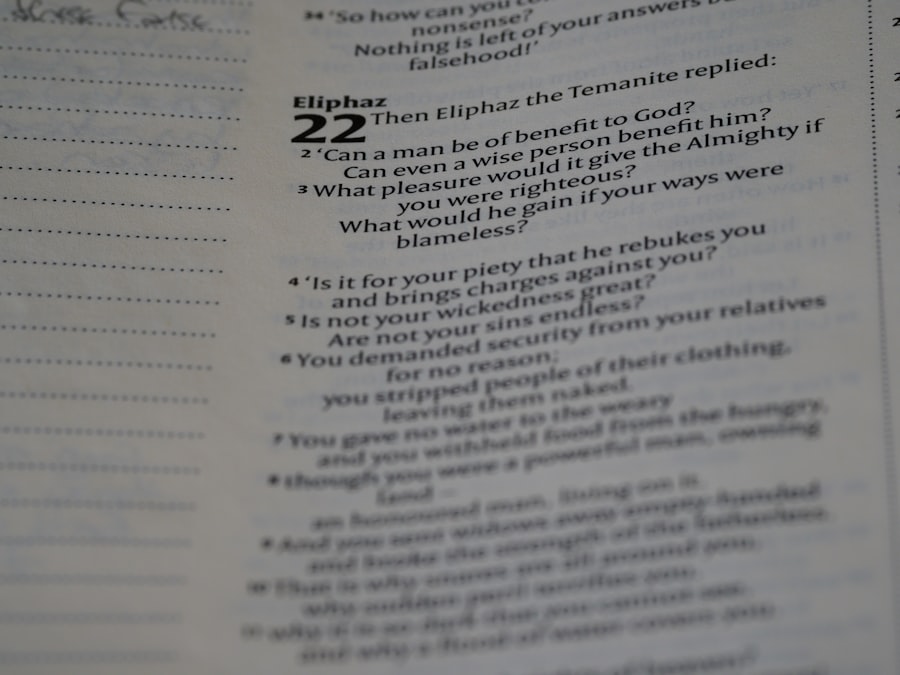 34 'So how can you
nonsense?
Nothing is left of your answers
falsehood!'
Eliphaz
22 Then Eliphaz the Temanite replied:
2 'Can a man be of benefit to God?
Can even a wise person benefit him?
3 What pleasure would it give the Almighty if
you were righteous?
What would he gain if your ways were
blameless?
4 'Is it for your piety that he rebukes you
and brings charges against you?
5 Is not your wickedness great?
Are not your sins endless?
6 You demanded security from your relatives
for no reason;
you stripped people of their clothing,
leaving them naked.
7 You gave no water to the weary
and you withheld food from the hungry,
8 though you were a powerful man, owning
land –
an honoured man, living on it.
9 And you sent widows away empty-handed
and broke the strength of the fatherless.
10 That is why snares are all around you,
why sudden peril terrifies you,
11 why it is so dark that you cannot see,
and why a flood of water covers you.